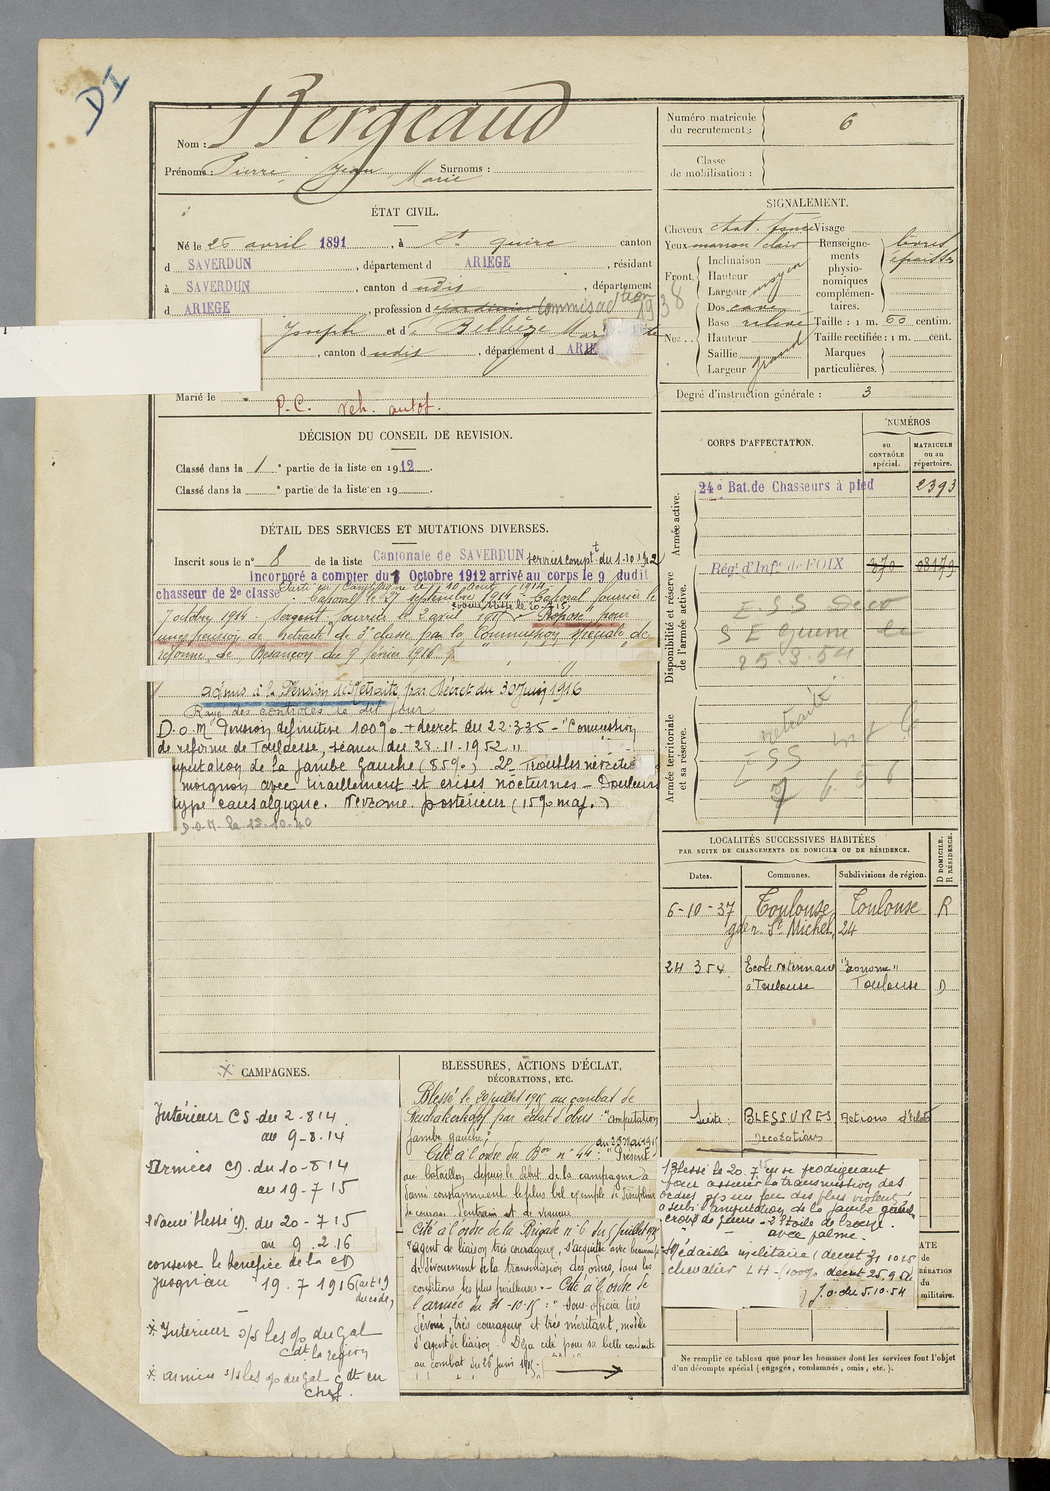 DI
Nom : Bergeaud
Prénoms : Pierre, Jean, Marie Surnoms :
Numéro matricule du recrutement : 6
Classe de mobilisation :
ÉTAT CIVIL.
Né le 25 avril 1891, à St quirc canton
d SAVERDUN, département d ARIEGE, résidant
à SAVERDUN, canton d udis, département
d ARIEGE, profession d Commis
1938
Joseph et d Belbèze
, canton d udis, département d ARIE
Marié le
P.C. veh. autof.
SIGNALEMENT.
Cheveux chat. foncé Visage
Yeux marron clair
Front Inclinaison
Hauteur
Largeur moyen
Nez Dos cave
Base relevé
Hauteur
Saillie
Largeur grand
Renseignements physionomiques complémentaires. lèvres épaisses
Taille : 1 m. 60 centim.
Taille rectifiée : 1 m. cent.
Marques particulières.
Degré d'instruction générale : 3
DÉCISION DU CONSEIL DE REVISION.
Classé dans la 1e partie de la liste en 1912.
Classé dans la e partie de la liste en 19
CORPS D'AFFECTATION.
NUMÉROS
au CONTRÔLE spécial.
MATRICULE ou au répertoire.
Armée active.
24e Bat. de Chasseurs à pied 2393
Disponibilité et réserve de l'armée active.
Régt d'Infie de FOIX
E.S.S
25.3.54
Armée territoriale et sa réserve.
retraité
ESS
DÉTAIL DES SERVICES ET MUTATIONS DIVERSES.
Inscrit sous le n° 8 de la liste Cantonale de SAVERDUN services compt du 1-10-1912
Incorporé a compter du 8 Octobre 1912 arrivé au corps le 9 dudit
chasseur de 2e classe Parti en campagne le 10 août 1914
Caporal le 27 septembre 1914 Caporal fourrier le
7 octobre 1914 Sergent fourrier le 2 avril 1915 Proposé pour
une pension de retraite de 3e classe par la Commission spéciale de
réforme de Besançon du 9 février 1916
admis à la Pension de Retraite par Décret du 30 Juin 1916
Rayé des contrôles le dit jour
D.O.M Pension définitive 100% + décret du 22.3.35 - "Commission
de réforme de Toulouse, séance du 28-11-1952"
amputation de la jambe gauche (85%) 2e Troubles
moignon avec tiraillement et crises nocturnes - Douleurs
type causalgique. Névrome postérieur (15% maj.)
D.O.M. le 12-10-40
LOCALITÉS SUCCESSIVES HABITÉES
PAR SUITE DE CHANGEMENTS DE DOMICILE OU DE RÉSIDENCE.
Dates. Communes. Subdivisions de région. D DOMICILE. R RÉSIDENCE.
6-10-37 Toulouse Toulouse R
St Michel, 24
24 3 54 Ecole vétérinaire "Econome"
à Toulouse Toulouse D
* CAMPAGNES.
Intérieur CS du 2-8 14
au 9-8-14
Armées CD du 10-8 14
au 19-7 15
du 20-7 15
au 9.2.16
conserve le bénéfice de la CD
jusqu'au 19.7 1916 (art 19 du code)
* Intérieur s/s les o/o du Gal
Cdt la région
* armées s/s les o/o du Gal Cdt en
Chef.
BLESSURES, ACTIONS D'ÉCLAT,
DÉCORATIONS, ETC.
Blessé le 20 juillet 1915 au combat de
Reichackerkopf par éclat d'obus : "amputation
jambe gauche"
Cité à l'ordre du Bon n° 44 : "Présent
au bataillon depuis le début de la campagne a
donné constamment le plus bel exemple de discipline
de courage d'entrain et de vigueur
Cité à l'ordre de la Brigade n° 6 du 5 juillet 1915
"agent de liaison très courageux, s'acquitte avec beaucoup
de dévouement de la transmission des ordres, dans les
conditions les plus périlleuses. - Cité à l'ordre de
l'armée du 31-10-15 : "Sous-officier très
dévoué, très courageux et très méritant, modèle
d'agent de liaison. Déjà cité pour sa belle conduite
au combat du 26 juin 1915.
Suite : BLESSURES Actions d'éclat
Décorations
Blessé le 20.7.15 en se prodiguant
pour assurer la transmission des
ordres sous un feu des plus violents
a subi l'amputation de la jambe gauche
croix de guerre - étoile de bronze
avec palme.
Médaille militaire (décret 31 10 15
chevalier LH (100% décret 25.9.54
J.O. du 5.10.54
Ne remplir ce tableau que pour les hommes dont les services font l'objet
d'un décompte spécial (engagés, condamnés, omis, etc.).